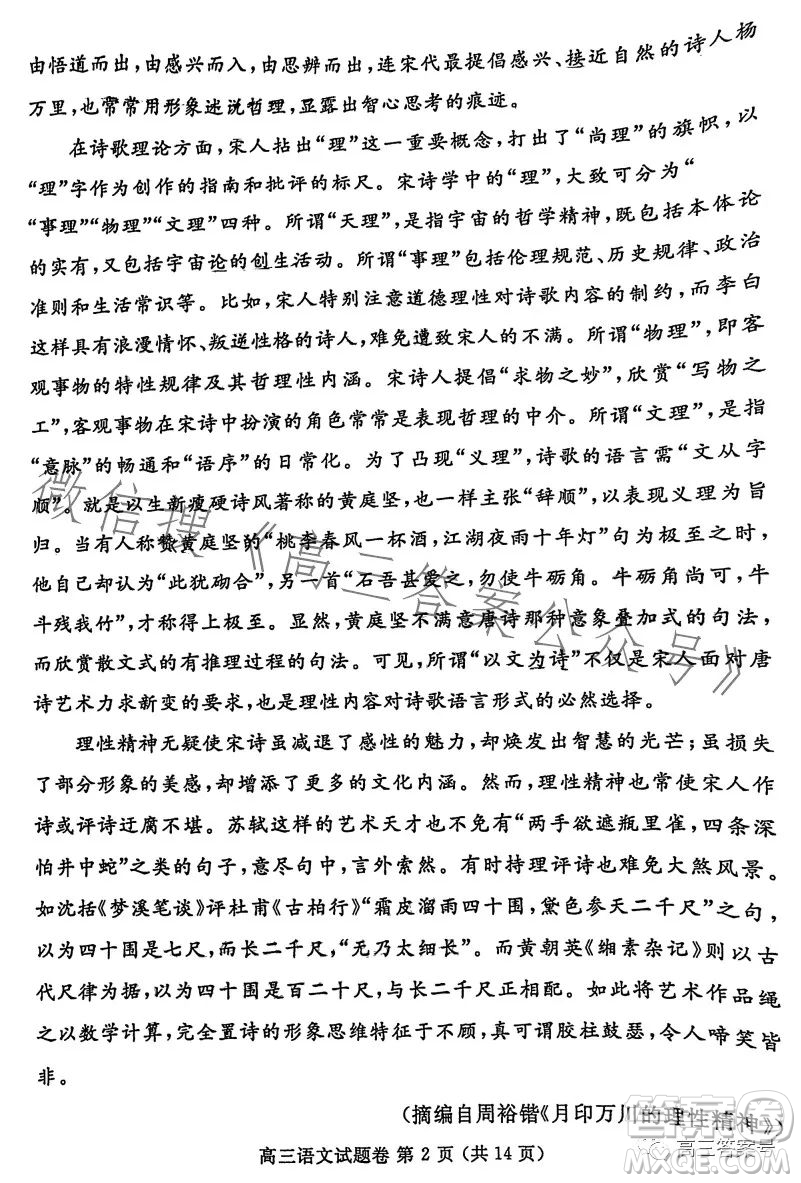 由悟道而出，由感兴而入，由思辨而出，连宋代最提倡感兴、接近自然的诗人杨
万里，也常常用形象述说哲理，显露出智心思考的痕迹。
在诗歌理论方面，宋人拈出“理”这一重要概念，打出了“尚理”的旗帜，以
“理”字作为创作的指南和批评的标尺。宋诗学中的“理”，大致可分为“
“事理”“物理”“文理”四种。所谓“天理”，是指宇宙的哲学精神，既包括本体论
的实有，又包括宇宙论的创生活动。所谓“事理”包括伦理规范、历史规律、政治
准则和生活常识等。比如，宋人特别注意道德理性对诗歌内容的制约，而李白
这样具有浪漫情怀、叛逆性格的诗人，难免遭致宋人的不满。所谓“物理”，即客
观事物的特性规律及其哲理性内涵。宋诗人提倡“求物之妙”，欣赏“写物之
工”，客观事物在宋诗中扮演的角色常常是表现哲理的中介。所谓“文理”，是指
“意脉”的畅通和“语序”的日常化。为了凸现“义理”，诗歌的语言需“文从字
顺”。就是以生新瘦硬诗风著称的黄庭坚，也一样主张“辞顺”，以表现义理为旨
归。当有人称赞黄庭坚的“桃李春风一杯酒，江湖夜雨十年灯”句为极至之时，
他自己却认为“此犹砌合”，另一首“石吾甚爱之，勿使牛砺角。牛砺角尚可，牛
斗残我竹”，才称得上极至。显然，黄庭坚不满意唐诗那种意象叠加式的句法，
而欣赏散文式的有推理过程的句法。可见，所谓“以文为诗”不仅是宋人面对唐
诗艺术力求新变的要求，也是理性内容对诗歌语言形式的必然选择。
理性精神无疑使宋诗虽减退了感性的魅力，却焕发出智慧的光芒；虽损失
了部分形象的美感，却增添了更多的文化内涵。然而，理性精神也常使宋人作
诗或评诗迂腐不堪。苏轼这样的艺术天才也不免有“两手欲遮瓶里雀，四条深
怕井中蛇”之类的句子，意尽句中，言外索然。有时持理评诗也难免大煞风景。
如沈括《梦溪笔谈》评杜甫《古柏行》“霜皮溜雨四十围，黛色参天二千尺”之句，
以为四十围是七尺，而长二千尺，“无乃太细长”。而黄朝英《缃素杂记》则以古
代尺律为据，以为四十围是百二十尺，与长二千尺正相配。如此将艺术作品绳
之以数学计算，完全置诗的形象思维特征于不顾，真可谓胶柱鼓瑟，令人啼笑皆
非。
（摘编自周裕锴《月印万川的理性精神》）
高三语文试题卷 第 2 页（共 14 页）
微信搜《高三答案公众号》
高三答案号
MXQE.COM